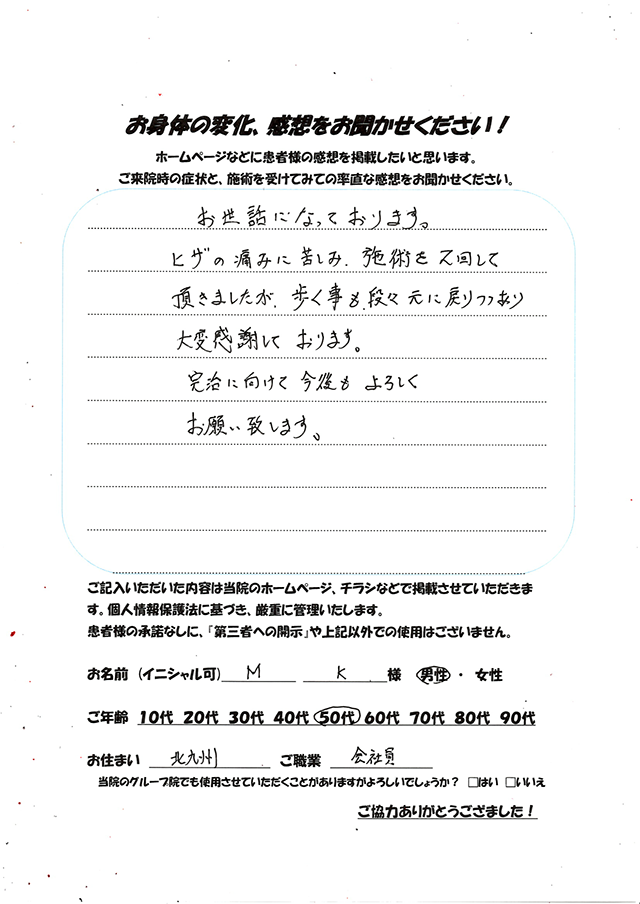 お身体の変化、感想をお聞かせください！
ホームページなどに患者様の感想を掲載したいと思います。
ご来院時の症状と、施術を受けてみての率直な感想をお聞かせください。
お世話になっております。
ヒザの痛みに苦しみ、施術を 回して
頂きましたが、歩く事も、段々元に戻りつつあり
大変感謝しております。
完治に向けて今後もよろしく
お願い致します。
ご記入いただいた内容は当院のホームページ、チラシなどで掲載させていただきま
す。個人情報保護法に基づき、厳重に管理いたします。
患者様の承諾なしに、「第三者への開示」や上記以外での使用はございません。
お名前 (イニシャル可) M K 様 男性 ・ 女性
ご年齢 10代 20代 30代 40代 50代 60代 70代 80代 90代
お住まい 北九州 ご職業 会社員
当院のグループ院でも使用させていただくことがありますがよろしいでしょうか？ □はい □いいえ
ご協力ありがとうござました！